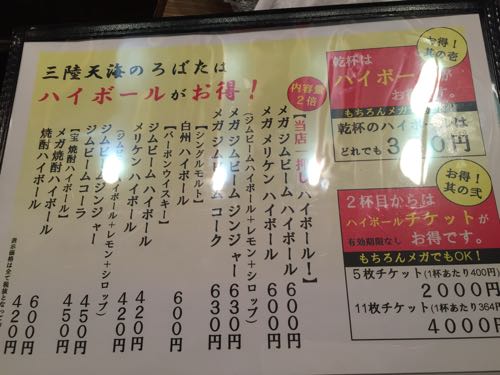 三陸天海のろばたは
ハイボールがお得！
内容量
2倍
【当店一押しハイボール！】
メガ ジムビーム ハイボール 600円
メガ メリケン ハイボール 600円
(ジムビームハイボール＋レモン＋シロップ)
メガ ジムビーム ジンジャー 630円
メガ ジムビーム コーク 630円
【シングルモルト】
白州 ハイボール 600円
【バーボンウイスキー】
ジムビーム ハイボール 420円
メリケン ハイボール 420円
(ジムビームハイボール＋レモン＋シロップ)
ジムビーム ジンジャー 450円
ジムビーム コーラ 450円
【宝 焼酎ハイボール】
メガ焼酎 ハイボール 600円
焼酎 ハイボール 420円
表示価格は全て税抜となって
お得！
其の壱
乾杯は
ハイボールが
お得です。
もちろんメガ
乾杯のハイボールは
どれでも 3 0円
お得！
其の弐
2杯目からは
ハイボールチケットが
有効期限なし お得です。
もちろんメガでもOK！
5枚チケット(1杯あたり400円)
2000円
11枚チケット(1杯あたり364円
4000円